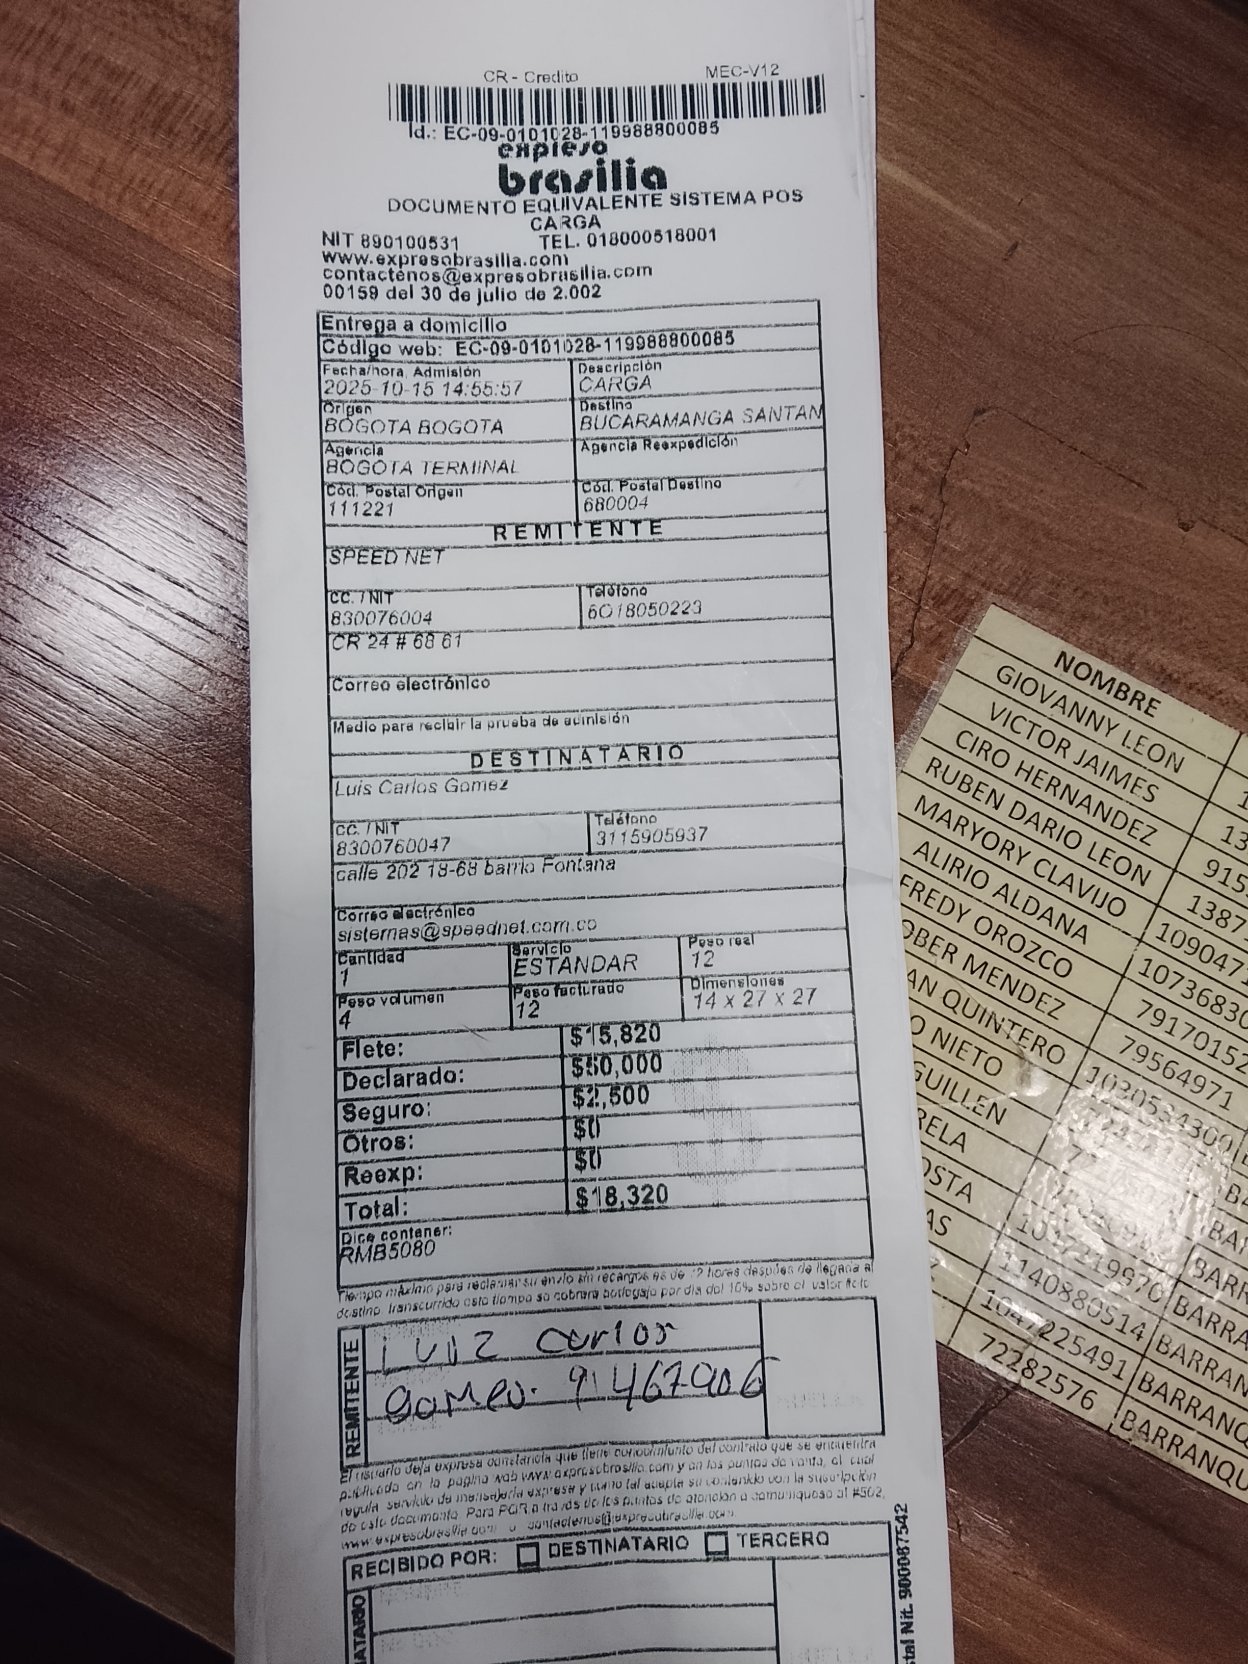 CR - Credito MEC-V12
Id.: EC-09-0101028-119988800085
expreso
brasilia
DOCUMENTO EQUIVALENTE SISTEMA POS
CARGA
NIT 890100531 TEL. 018000518001
www.expresobrasilia.com
contactenos@expresobrasilia.com
00159 del 30 de julio de 2.002
Entrega a domicilio
Código web: EC-09-0101028-119988800085
Fecha/hora, Admisión Descripción
2025-10-15 14:55:57 CARGA
Origen Destino
BOGOTA BOGOTA BUCARAMANGA SANTAN
Agencia Agencia Reexpedición
BOGOTA TERMINAL
Cód. Postal Origen Cód. Postal Destino
111221 680004
REMITENTE
SPEED NET
CC. / NIT Teléfono
830076004 6018050223
CR 24 # 68 61
Correo electrónico
Medio para recibir la prueba de admisión
DESTINATARIO
Luis Carlos Gomez
CC. / NIT Teléfono
8300760047 3115905937
calle 202 18-68 barrio Fontana
Correo electrónico
sistemas@speednet.com.co
Cantidad Servicio Peso real
1 ESTANDAR 12
Peso volumen Peso facturado Dimensiones
4 12 14 x 27 x 27
Flete: $15,820
Declarado: $50,000
Seguro: $2,500
Otros: $0
Reexp: $0
Total: $18,320
Dice contener:
RMB5080
Tiempo máximo para reclamar su envío sin recargos es de 72 horas después de llegada al
destino, transcurrido este tiempo se cobrara bodegaje por día del 10% sobre el valor flete
REMITENTE
LUIZ Carlos
Gomez. 91467906
El usuario deja expresa constancia que tiene conocimiento del contrato que se encuentra
publicado en la pagina web www.expresobrasilia.com y en los puntos de venta, el cual
regula servicio de mensajería expresa y como tal acepta su contenido con la suscripción
de este documento. Para PQR a través de los puntos de atención o comuníquese al #502,
www.expresobrasilia.com o contactenos@expresobrasilia.com.
RECIBIDO POR: DESTINATARIO TERCERO
ATARIO
tal Nit. 900087542
NOMBRE
GIOVANNY LEON 1
VICTOR JAIMES 13
CIRO HERNANDEZ 915
RUBEN DARIO LEON 1387
MARYORY CLAVIJO 109047
ALIRIO ALDANA 1073683
FREDY OROZCO 7917015
OBER MENDEZ 79564971
AN QUINTERO 1030534300
O NIETO
GUILLEN
RELA
OSTA
AS 1140880514 BARRAN
1047225491 BARRANQ
72282576 BARRANQU